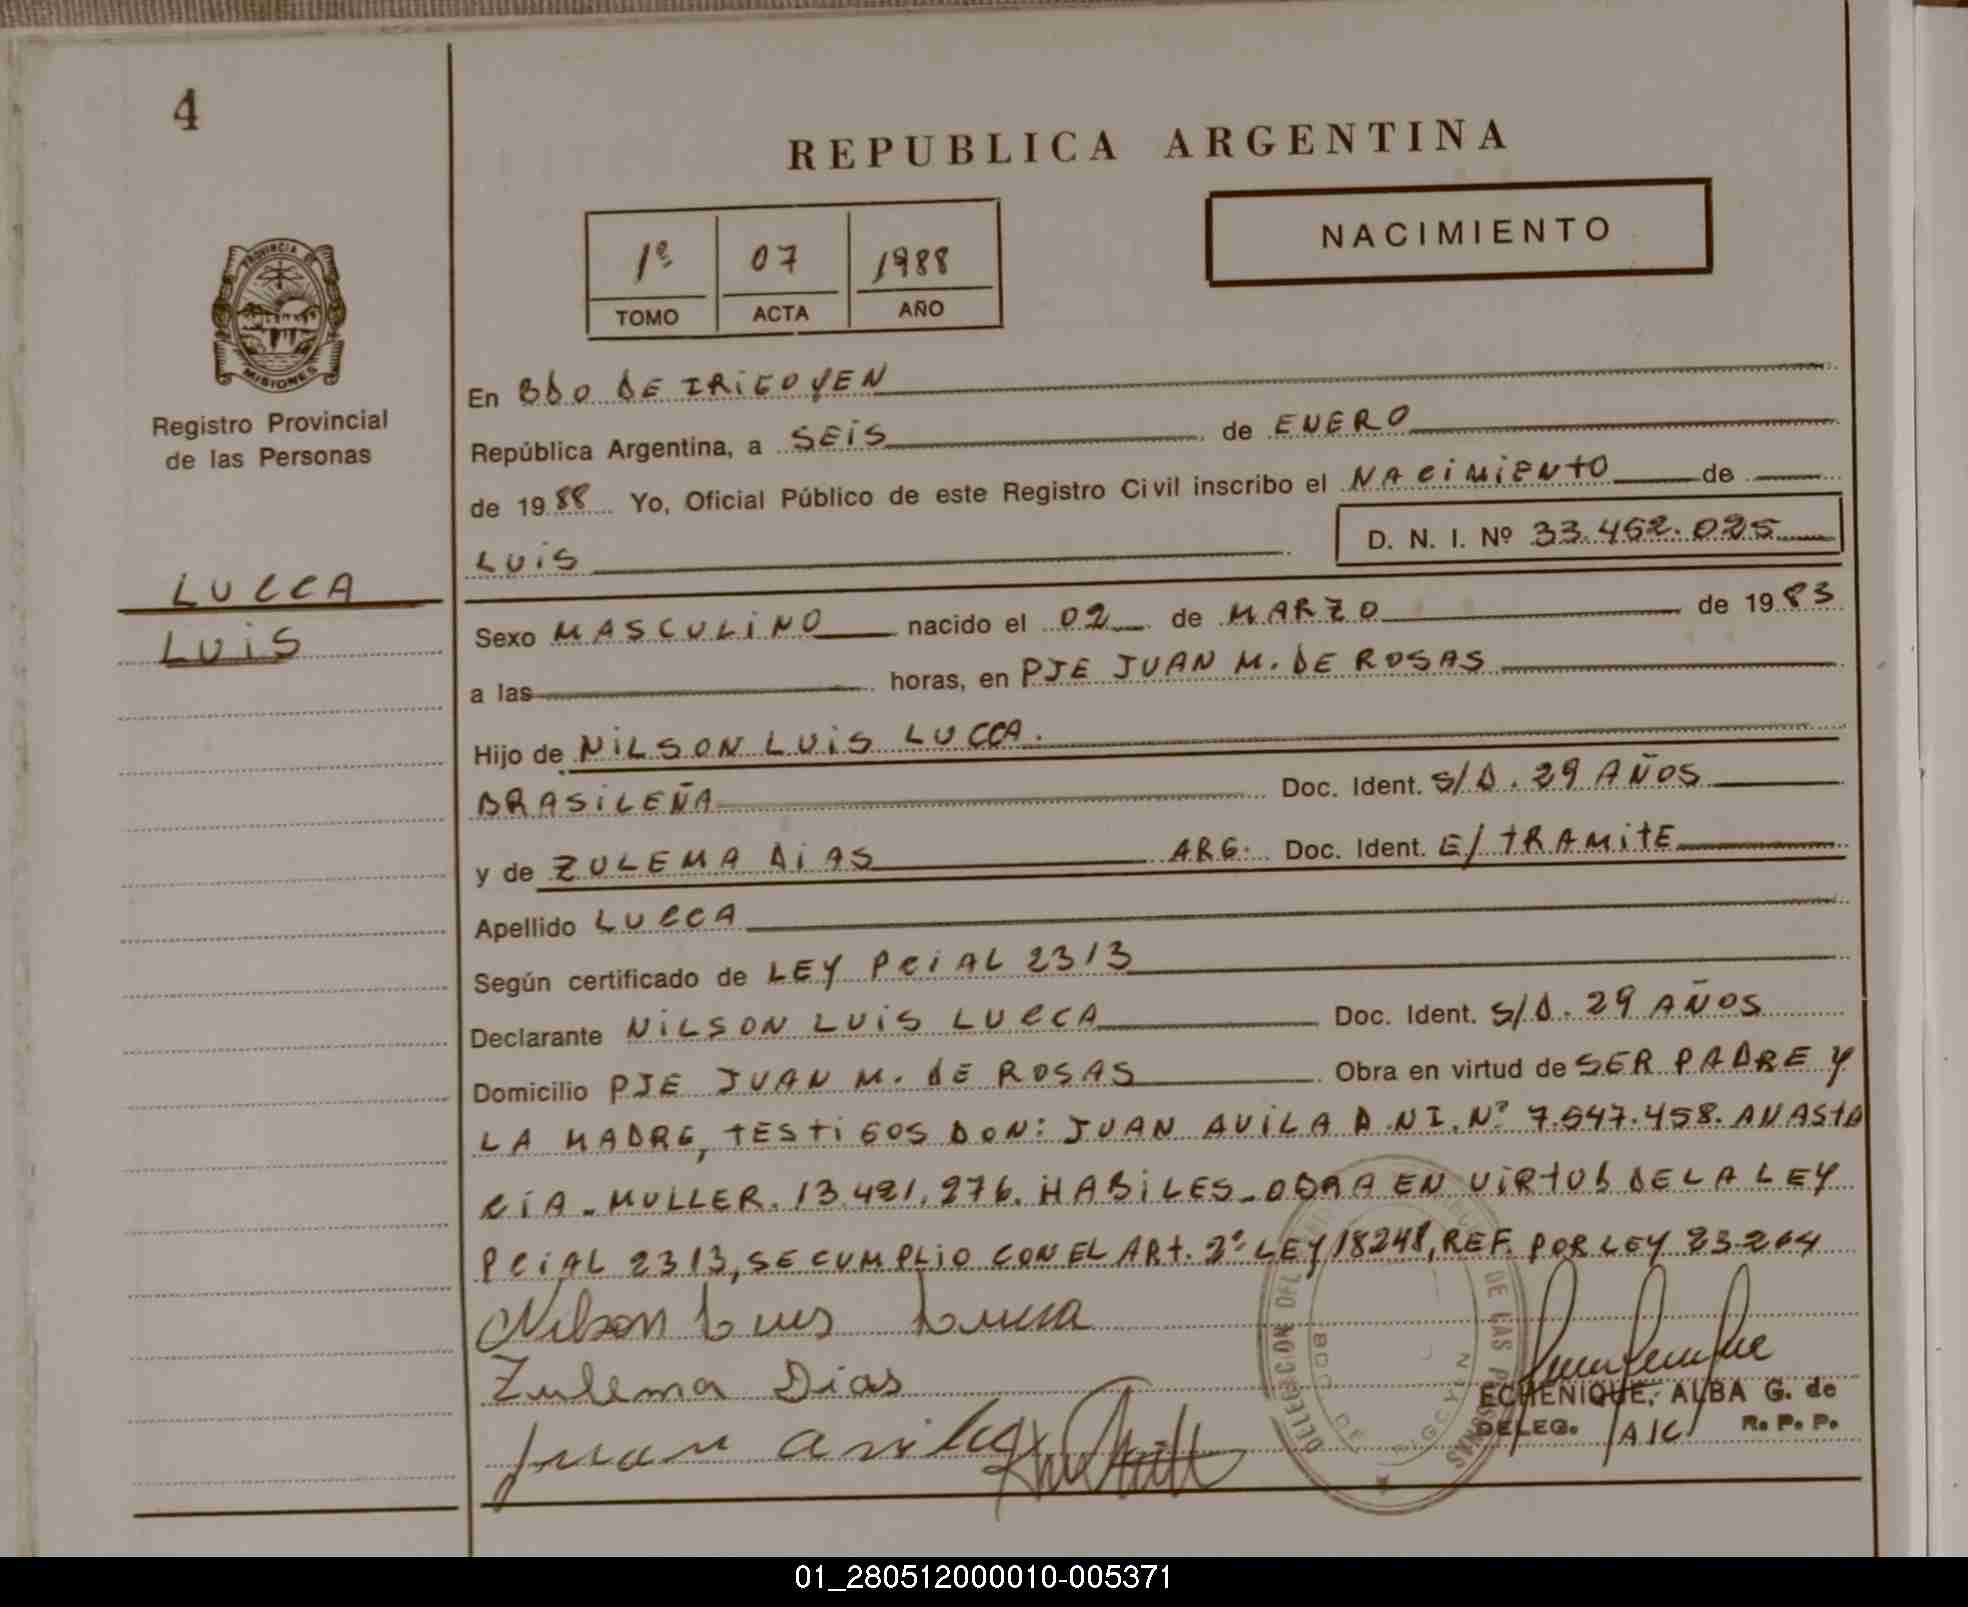 4
REPUBLICA ARGENTINA
NACIMIENTO
1º 07 1988
TOMO ACTA AÑO
PROVINCIA DE
MISIONES
Registro Provincial
de las Personas
LUCCA
LUIS
En BDO DE IRIGOYEN
República Argentina, a SEIS de ENERO
de 1988 Yo, Oficial Público de este Registro Civil inscribo el NACIMIENTO de
LUIS D. N. I. Nº 33.462.025
Sexo MASCULINO nacido el 02 de MARZO de 1983
a las horas, en PJE JUAN M. DE ROSAS
Hijo de NILSON LUIS LUCCA.
BRASILEÑA Doc. Ident. S/D. 29 AÑOS
y de ZULEMA DIAS ARG. Doc. Ident. E/TRAMITE
Apellido LUCCA
Según certificado de LEY PCIAL 2313
Declarante NILSON LUIS LUCCA Doc. Ident. S/D. 29 AÑOS
Domicilio PJE JUAN M. DE ROSAS Obra en virtud de SER PADRE Y
LA MADRE, TESTIGOS DON: JUAN AVILA D.NI. Nº 7.547.458. ANASTA
CIA - MULLER. 13.421.276. HABILES - OBRA EN VIRTUD DE LA LEY
PCIAL 2313, SE CUMPLIO CON EL ART. 2º LEY 18248, REF. POR LEY 23.264
Nilson Luis Lucca
Zulema Dias
Juan Avila
DELEGACION DEL DE LAS PERSONAS
BDO DE IRIGOYEN
ECHENIQUE, ALBA G. de
DELEG. A/C R. P. P.
01_280512000010-005371